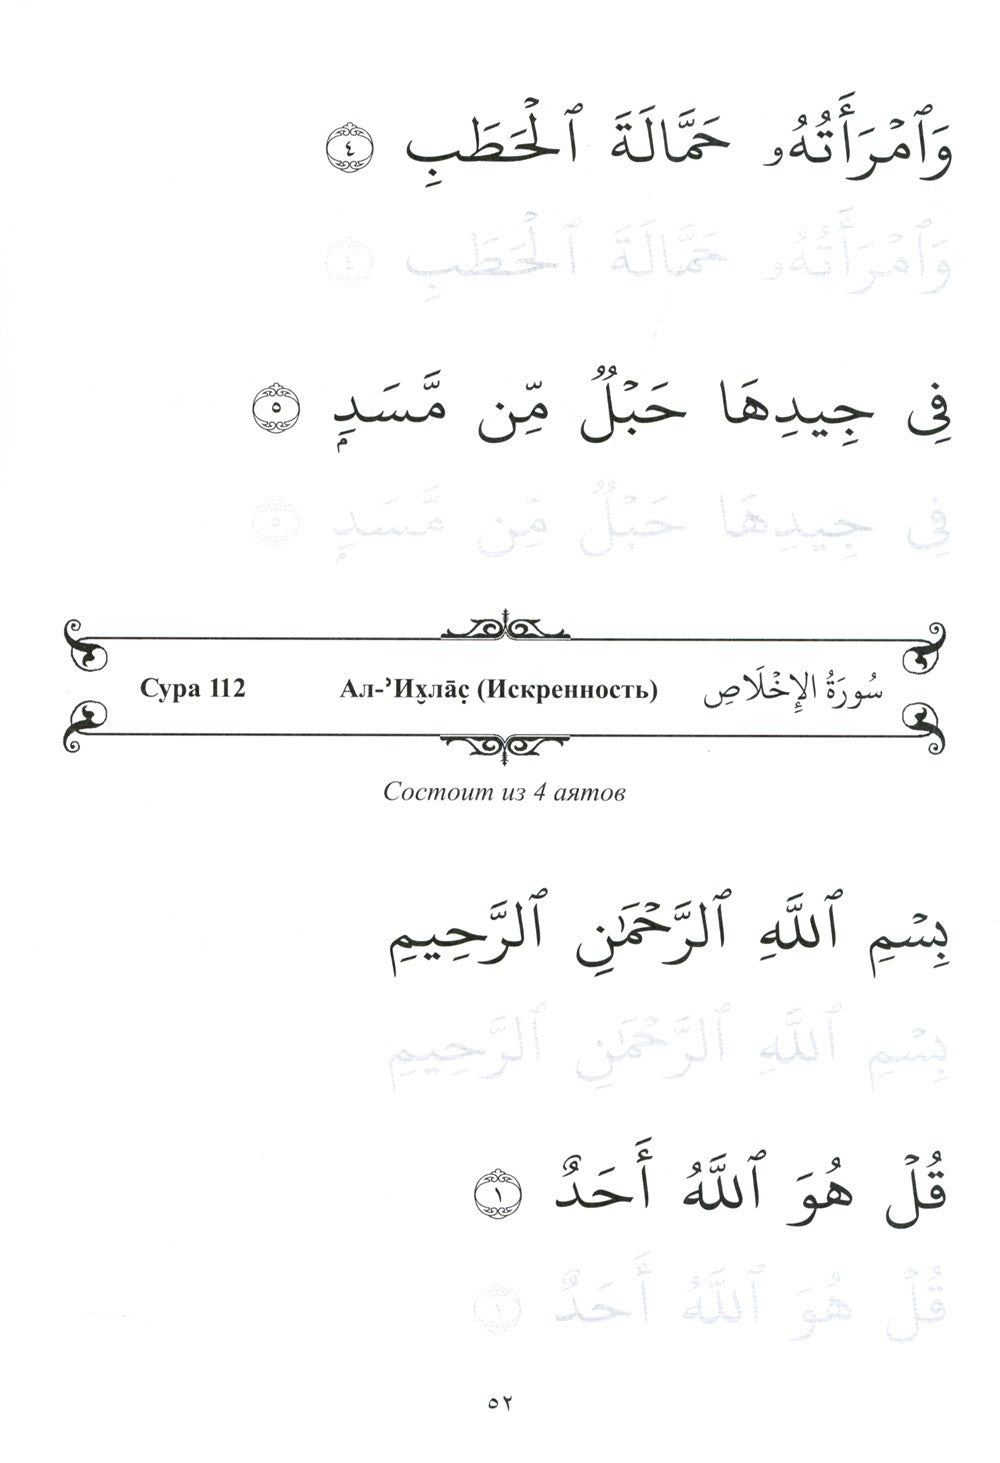 وَٱمْرَأَتُهُۥ حَمَّالَةَ ٱلْحَطَبِ ٤
وَٱمْرَأَتُهُۥ حَمَّالَةَ ٱلْحَطَبِ ٤
فِى جِيدِهَا حَبْلٌ مِّن مَّسَدٍۭ ٥
فِى جِيدِهَا حَبْلٌ مِّن مَّسَدٍۭ ٥
Сура 112 Ал-ʾИх̮ла̄с̣ (Искренность) سُورَةُ الإِخْلَاصِ
Состоит из 4 аятов
بِسْمِ ٱللَّهِ ٱلرَّحْمَٰنِ ٱلرَّحِيمِ
بِسْمِ ٱللَّهِ ٱلرَّحْمَٰنِ ٱلرَّحِيمِ
قُلْ هُوَ ٱللَّهُ أَحَدٌ ١
قُلْ هُوَ ٱللَّهُ أَحَدٌ ١
٥٢